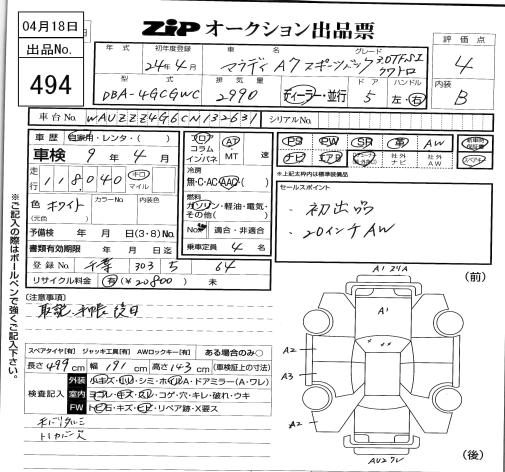 04月18日
出品No.
494
ZIP オークション出品票
評価点
4
内装
B
年式 初年度登録 車名 グレード
24年4月 アウディ A7 スポーツバック 3.0TFSI クワトロ
型式 排気量 ドア ハンドル
DBA-4GCGWC 2990 ディーラー・並行 5 左・右
車台No. WAUZZZ4G6CN132631 シリアルNo.
車歴 自家用・レンタ・( )
車検 9年4月
走行 118040 キロ マイル
色 ホワイト カラーNo. 内装色
(元色)
予備検 年 月 日(3・8)No.
書類有効期限 年 月 日迄
登録No. 千葉 303 5 64
リサイクル料金 有(¥20800) 未
フロア コラム インパネ AT MT 速
冷房
無・C・AC・AAC( )
燃料
ガソリン・軽油・電気・その他( )
Nox 適合・非適合
乗車定員 4 名
PS PW SR 革 AW
ナビ エアB 社外ナビ 社外AW スペアキー
※上記太枠内は標準装備品
セールスポイント
・初出品
・20インチAW
(注意事項)
取説、手帳後日
スペアタイヤ[有] ジャッキ工具[有] AWロックキー[有] ある場合のみ○
長さ499cm 幅191cm 高さ143cm (車検証上の寸法)
検査記入
外装 小キズ・ヒリ・シミ・ホイルA・ドアミラー(A・ワレ)
室内 ヨゴレ・キズ・スレ・コゲ・穴・キレ・破れ・ウキ
FW トビ石・キズ・ヒビ・リペア跡・X要ス
※ご記入の際はボールペンで強くご記入下さい。
A1 (前)
A1
A2
A3
A2
(後)